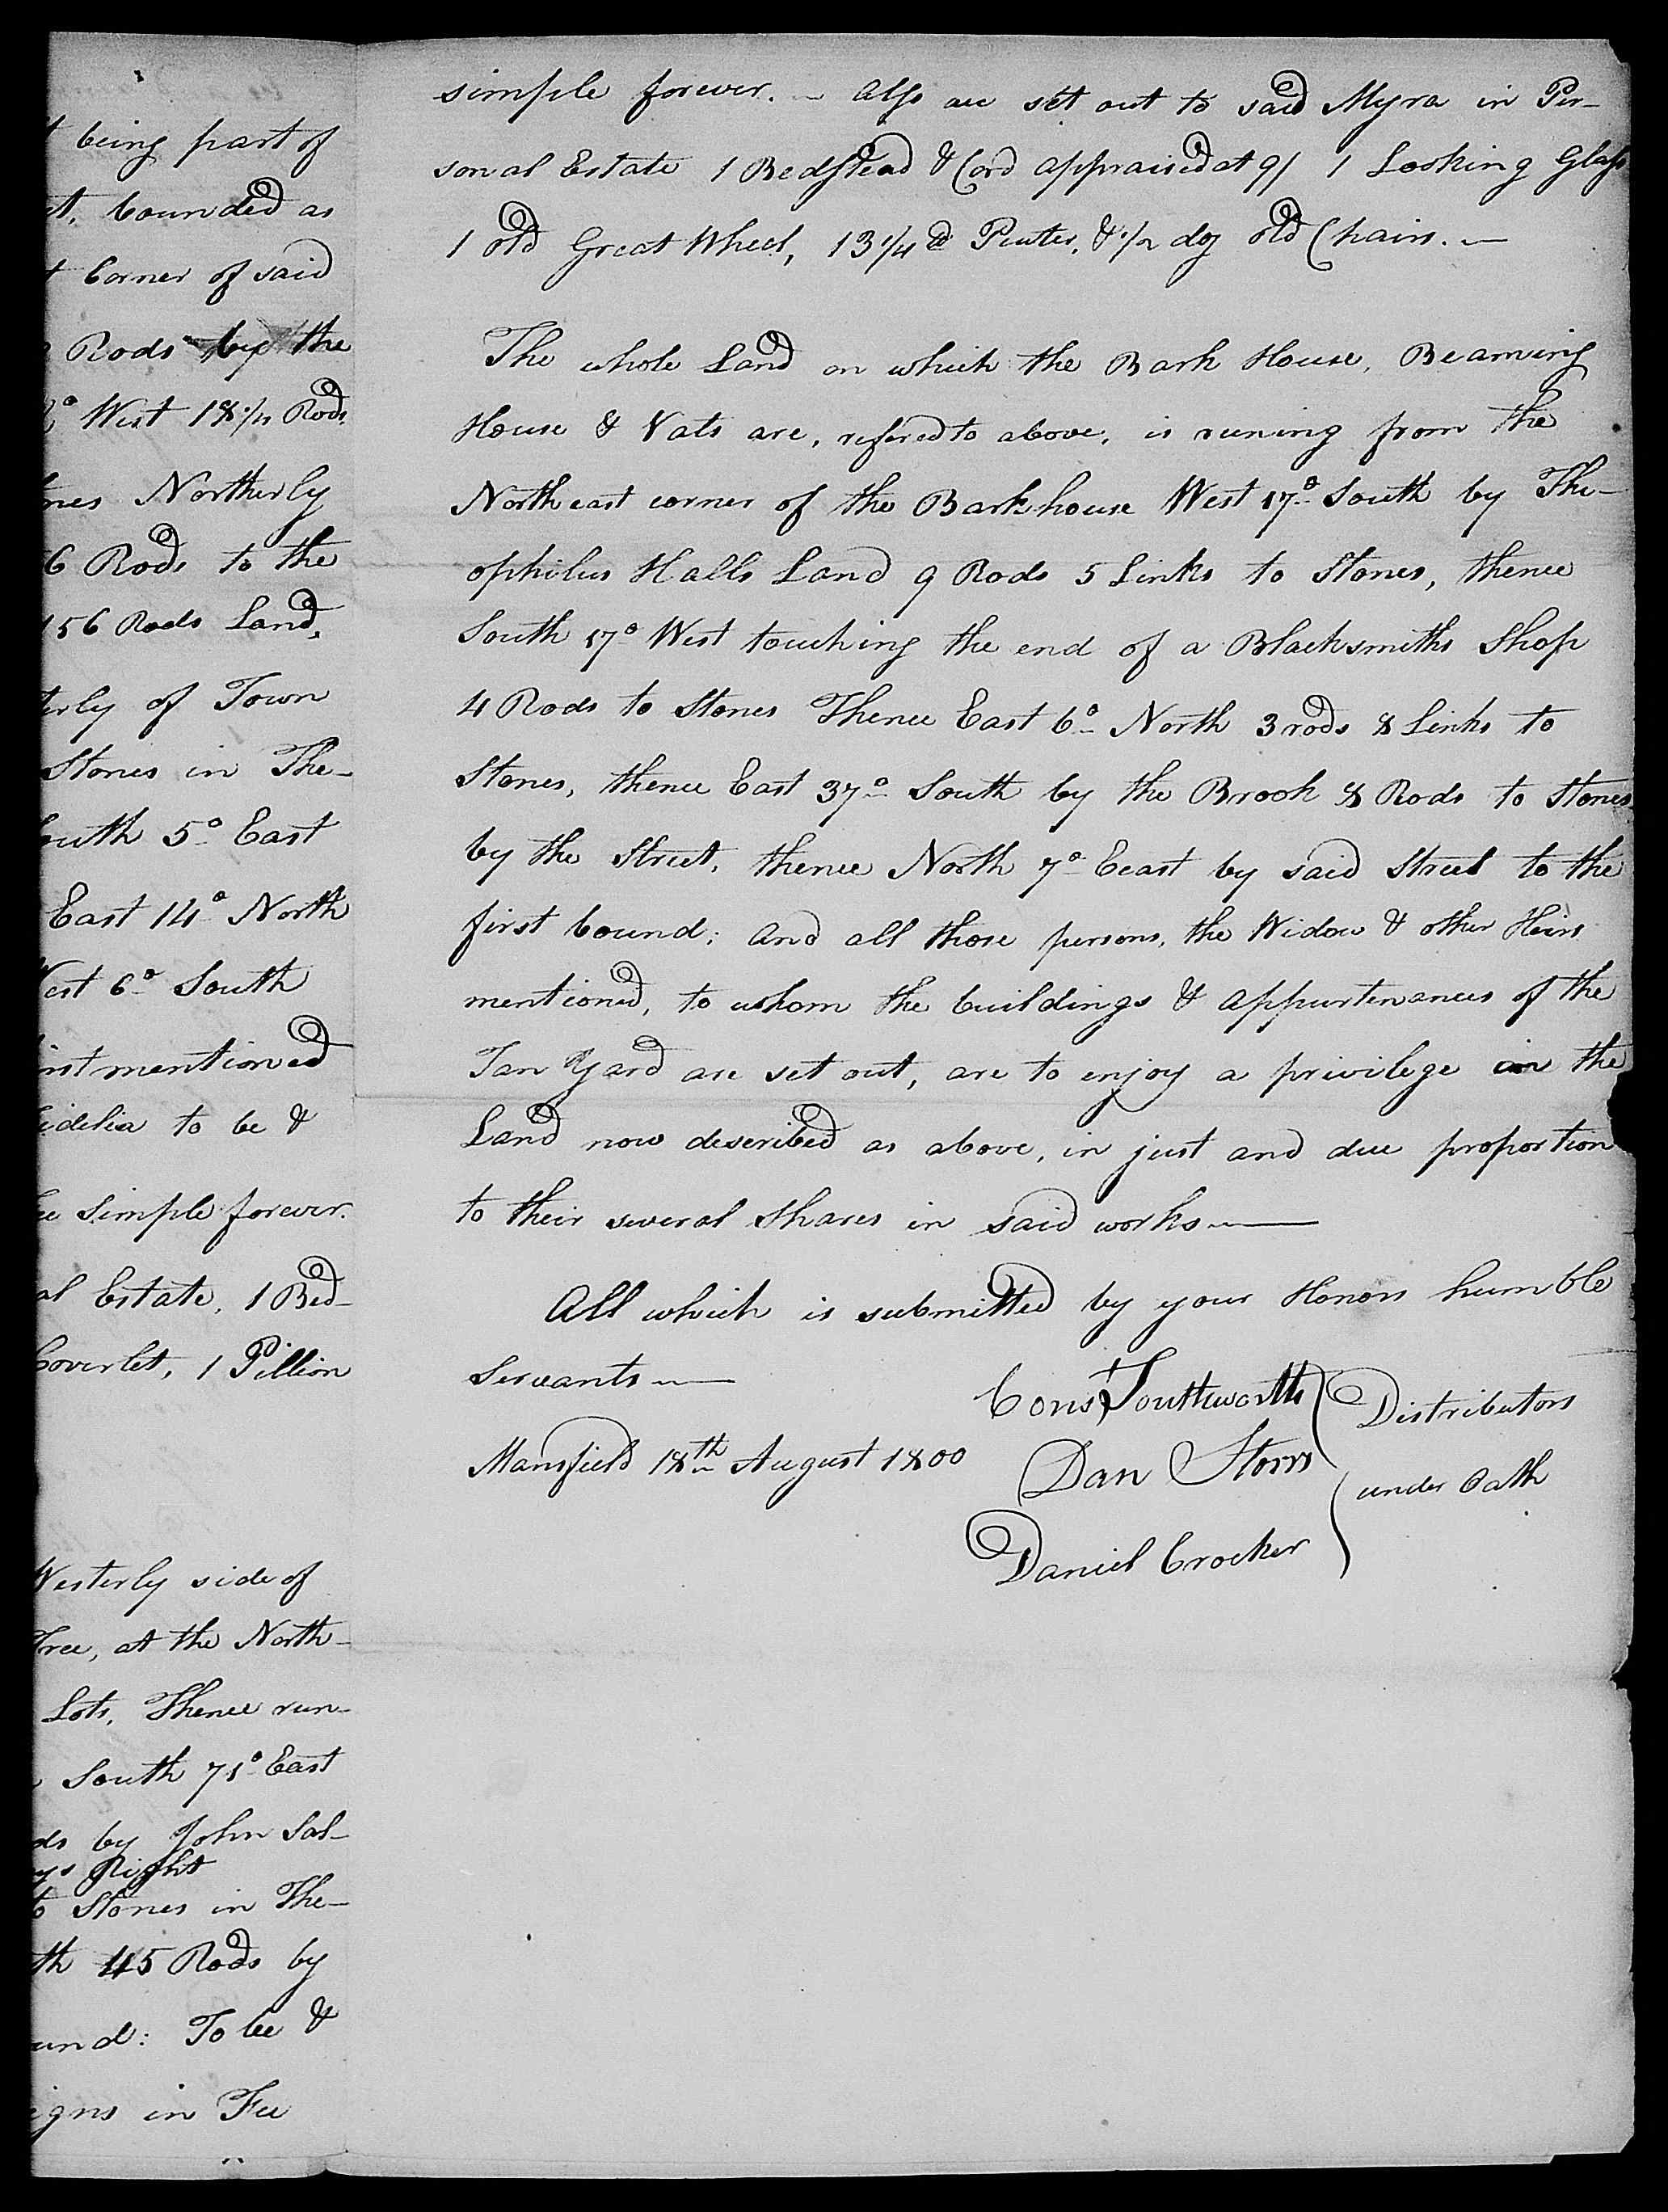 t being part of
t, bounded as
t Corner of said
Rods by the
° West 18 1/4 Rods
nes Northerly
6 Rods to the
156 Rods Land,
terly of Town
Stones in The-
outh 5° East
East 14° North
est 6° South
irst mentioned
idelia to be &
ee Simple forever.
al Estate, 1 Bed-
Coverlet, 1 Pillion
Westerly side of
Tree, at the North-
Lots, Thence run-
South 71° East
ds by John Sal-
ys Right
to Stones in The-
th 45 Rods by
und: To be &
igns in Fee
simple forever. - Also are set out to said Myra in Per-
sonal Estate 1 Bedstead & Cord appraised at 9/ 1 Looking Glass
1 old Great Wheel, 13 1/4 lb Peuter, & 1/2 doz old Chairs. -
The whole Land on which the Bark House, Beaming
House & Vats are, refered to above, is runing from the
North east corner of the Bark house West 17° South by The-
ophilus Halls Land 9 Rods 5 Links to Stones, thence
South 17° West touching the end of a Blacksmiths Shop
4 Rods to Stones Thence East 6° North 3 rods 8 Links to
Stones, thence East 37° South by the Brook 8 Rods to Stones
by the Street, thence North 7° Eeast by said Street to the
first bound; and all those persons, the Widow & other Heirs
mentioned, to whom the buildings & appurtenances of the
Tan Yard are set out, are to enjoy a privilege in the
Land now described as above, in just and due proportion
to their several shares in said works -
All which is submitted by your Honors humble
Servants -
Mansfield 18th August 1800
Const Southworth
Dan Storrs
Daniel Crocker
Distributors
under Oath